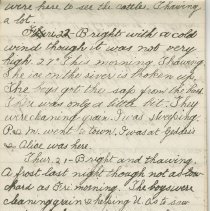 were here to see the cattle. Thawing
a lot.
Ther. 22 Bright with a cold
wind though it was not very
high. 28° this morning. Thawing.
The ice on the river is broken up.
The boys got the sap from the bush
There was only a little bit. They
were cleaning grain. I was sleeping.
P & M. went to town. I was at
& Alice was here.
Ther. 21 - Bright and thawing.
A frost last night though not as low
hard as Fri. morning. The boys were
cleaning grain & helping U. to saw